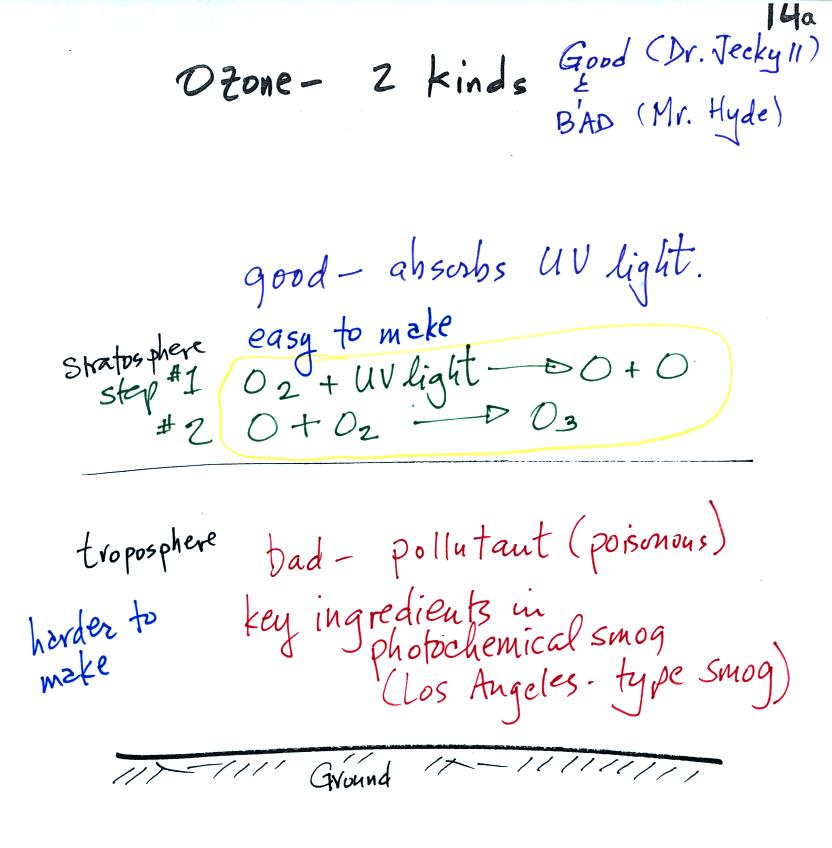 14a
Ozone - 2 kinds
Good (Dr. Jeckyll)
&
BAD (Mr. Hyde)
good - absorbs UV light.
easy to make
Stratosphere
step #1 O2 + UV light → O + O
#2 O + O2 → O3
troposphere
bad - pollutant (poisonous)
harder to
make
key ingredients in
photochemical smog
(Los Angeles - type smog)
Ground